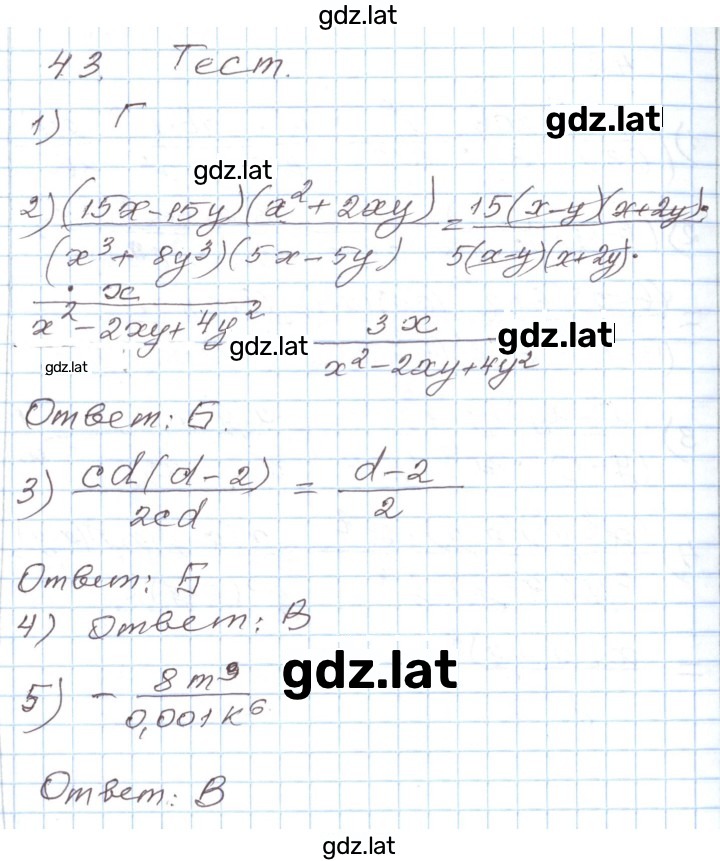 gdz.lat
43. Тест.
1) Г
gdz.lat
gdz.lat
2) (15x-15y)(x²+2xy) / (x³+8y³)(5x-5y) = 15(x-y)(x+2y)· / 5(x-y)(x+2y)·
· x / x²-2xy+4y² 3x / x²-2xy+4y²
gdz.lat
gdz.lat
gdz.lat
Ответ: Б.
3) cd(d-2) / 2cd = d-2 / 2
Ответ: Б
4) Ответ: В
gdz.lat
5) - 8m⁹ / 0,001k⁶
Ответ: В
gdz.lat